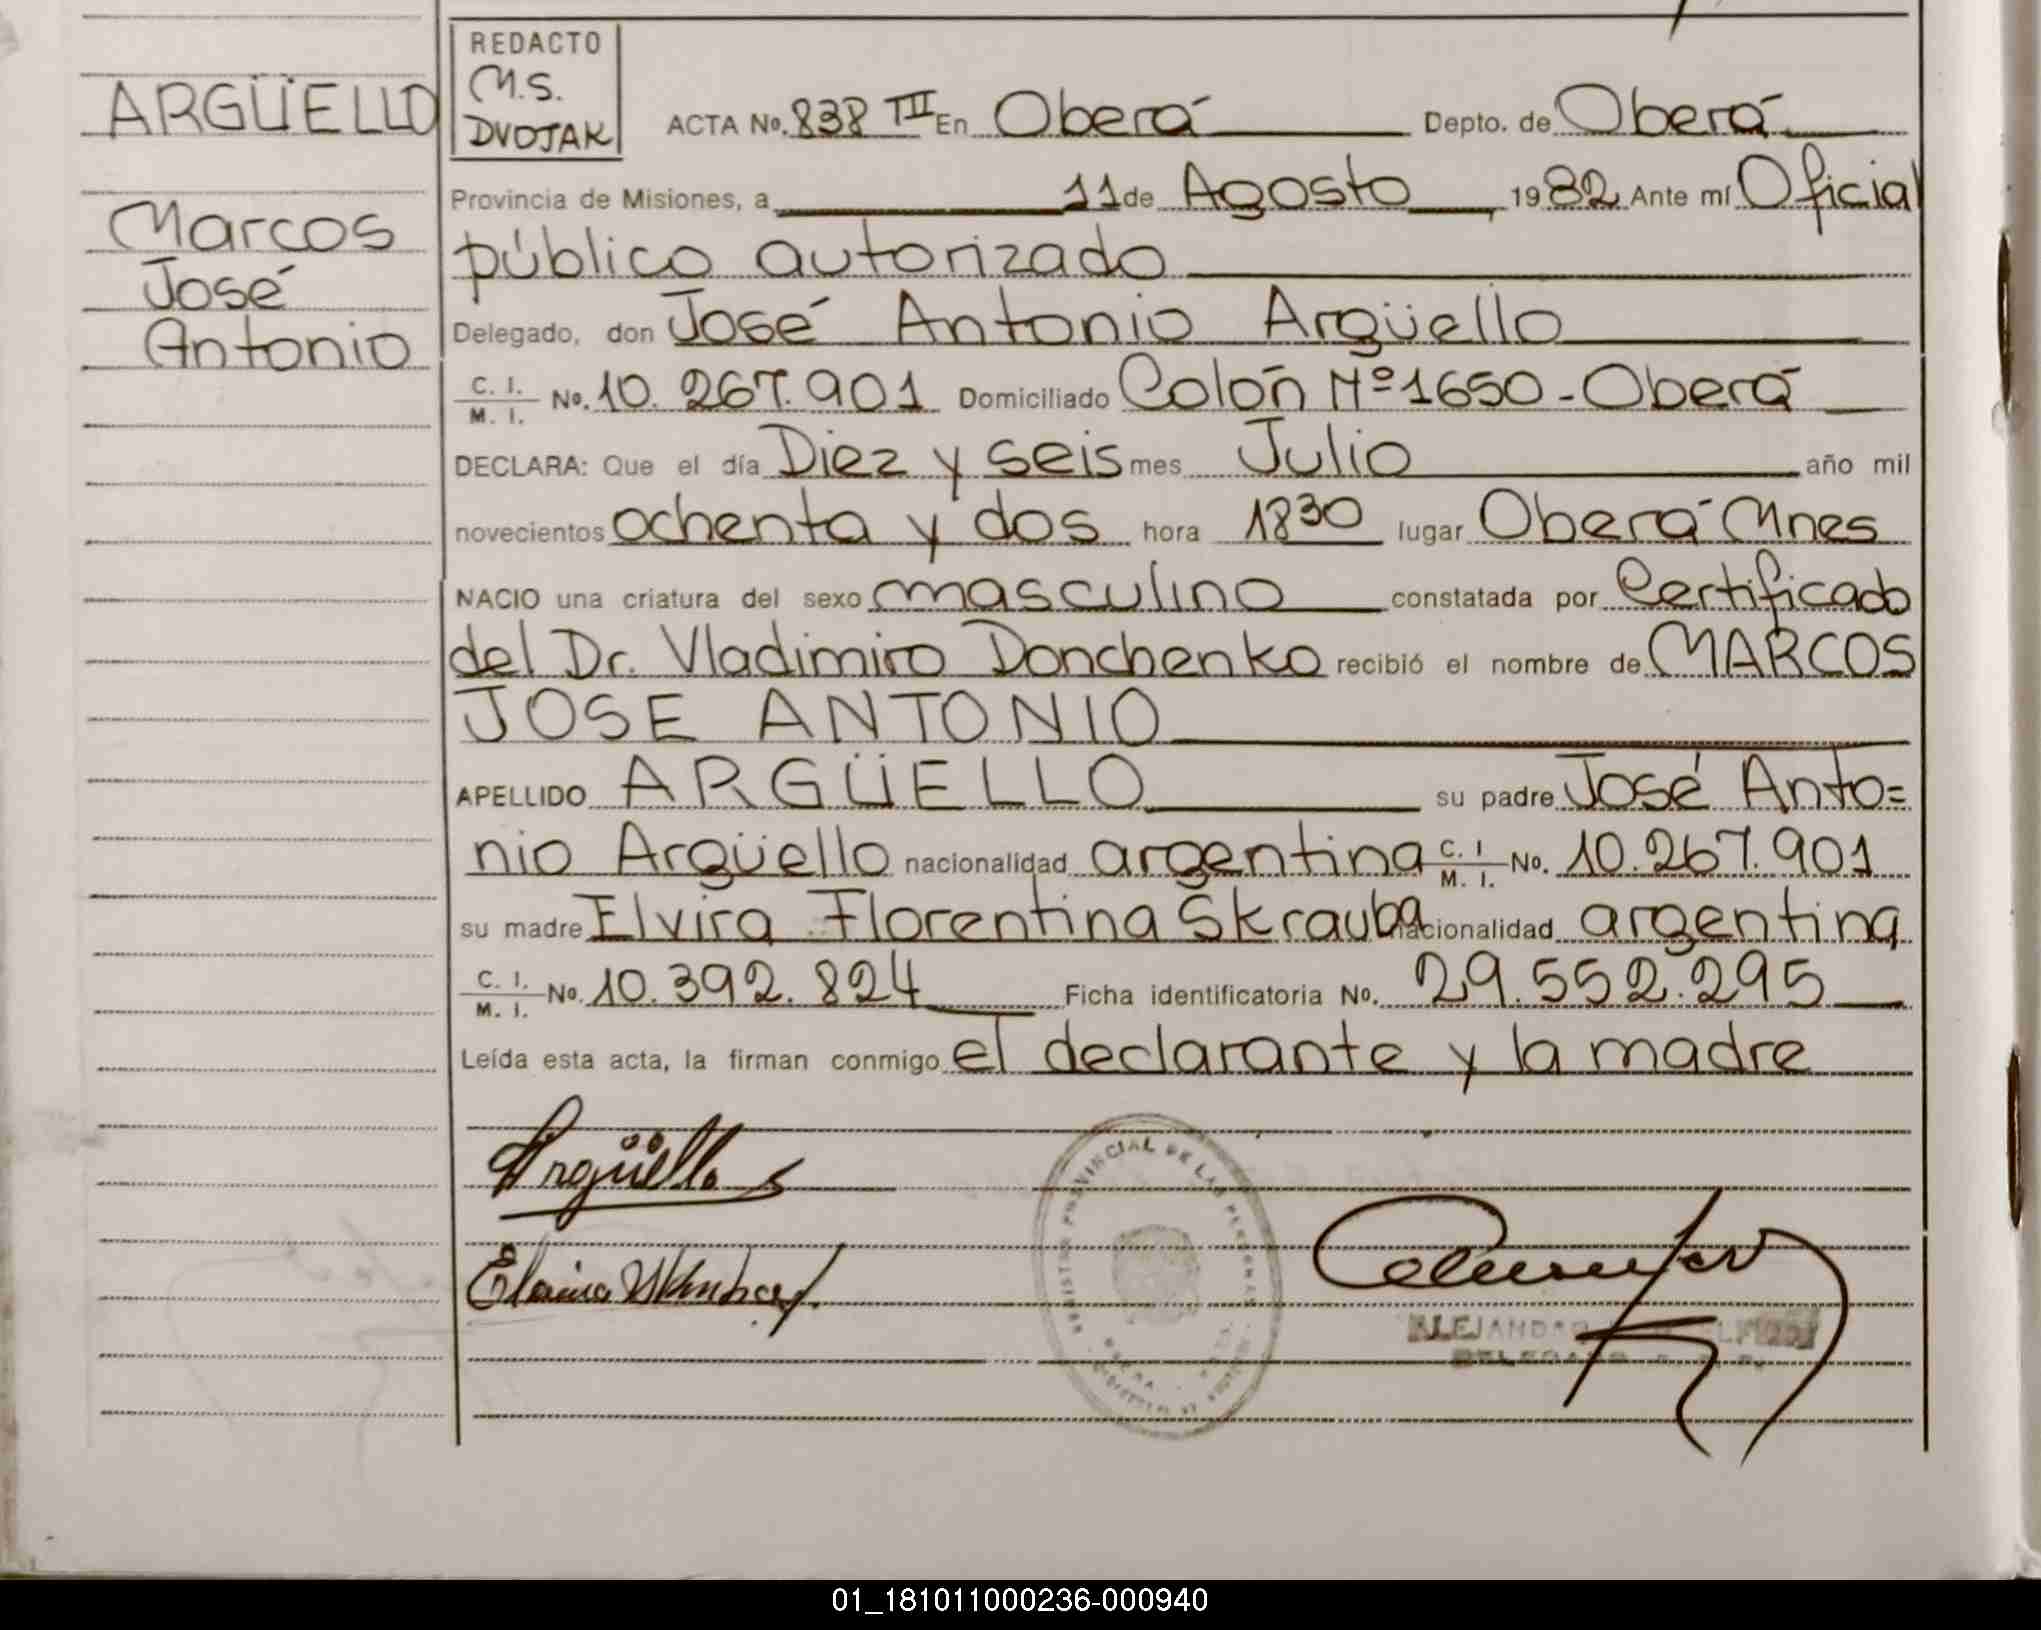 ARGÜELLO
Marcos
José
Antonio
REDACTO
M.S.
DVOJAK
ACTA No. 838 III En Oberá Depto. de Oberá
Provincia de Misiones, a 11 de Agosto 1982 Ante mí Oficial
público autorizado
Delegado, don José Antonio Argüello
C. I. / M. I. No. 10.267.901 Domiciliado Colón Nº 1650 - Oberá
DECLARA: Que el día Diez y seis mes Julio año mil
novecientos ochenta y dos hora 1830 lugar Oberá Mnes
NACIO una criatura del sexo masculino constatada por Certificado
del Dr. Vladimiro Donchenko recibió el nombre de MARCOS
JOSE ANTONIO
APELLIDO ARGÜELLO su padre José Anto=
nio Argüello nacionalidad argentina C. I / M. I. No. 10.267.901
su madre Elvira Florentina Skrauba nacionalidad argentina
C. I. / M. I. No. 10.392.824 Ficha identificatoria No. 29.552.295
Leída esta acta, la firman conmigo el declarante y la madre
Argüello
PROVINCIAL DE LAS PERSONAS
ALEJANDRO
DELEGADO
01_181011000236-000940